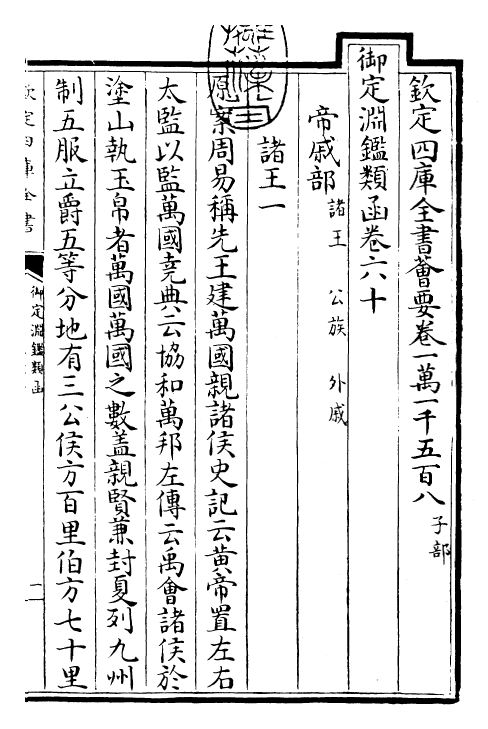 欽定四庫全書薈要卷一萬一千五百八 子部
御定淵鑑類函卷六十
帝戚部 諸王 公族 外戚
諸王一
原案周易稱先王建萬國親諸侯史記云黄帝置左右
太監以監萬國堯典云協和萬邦左傳云禹會諸侯於
塗山執玉帛者萬國萬國之數盖親賢兼封夏列九州
制五服立爵五等分地有三公侯方百里伯方七十里
欽定四庫全書
御定淵鑑類函